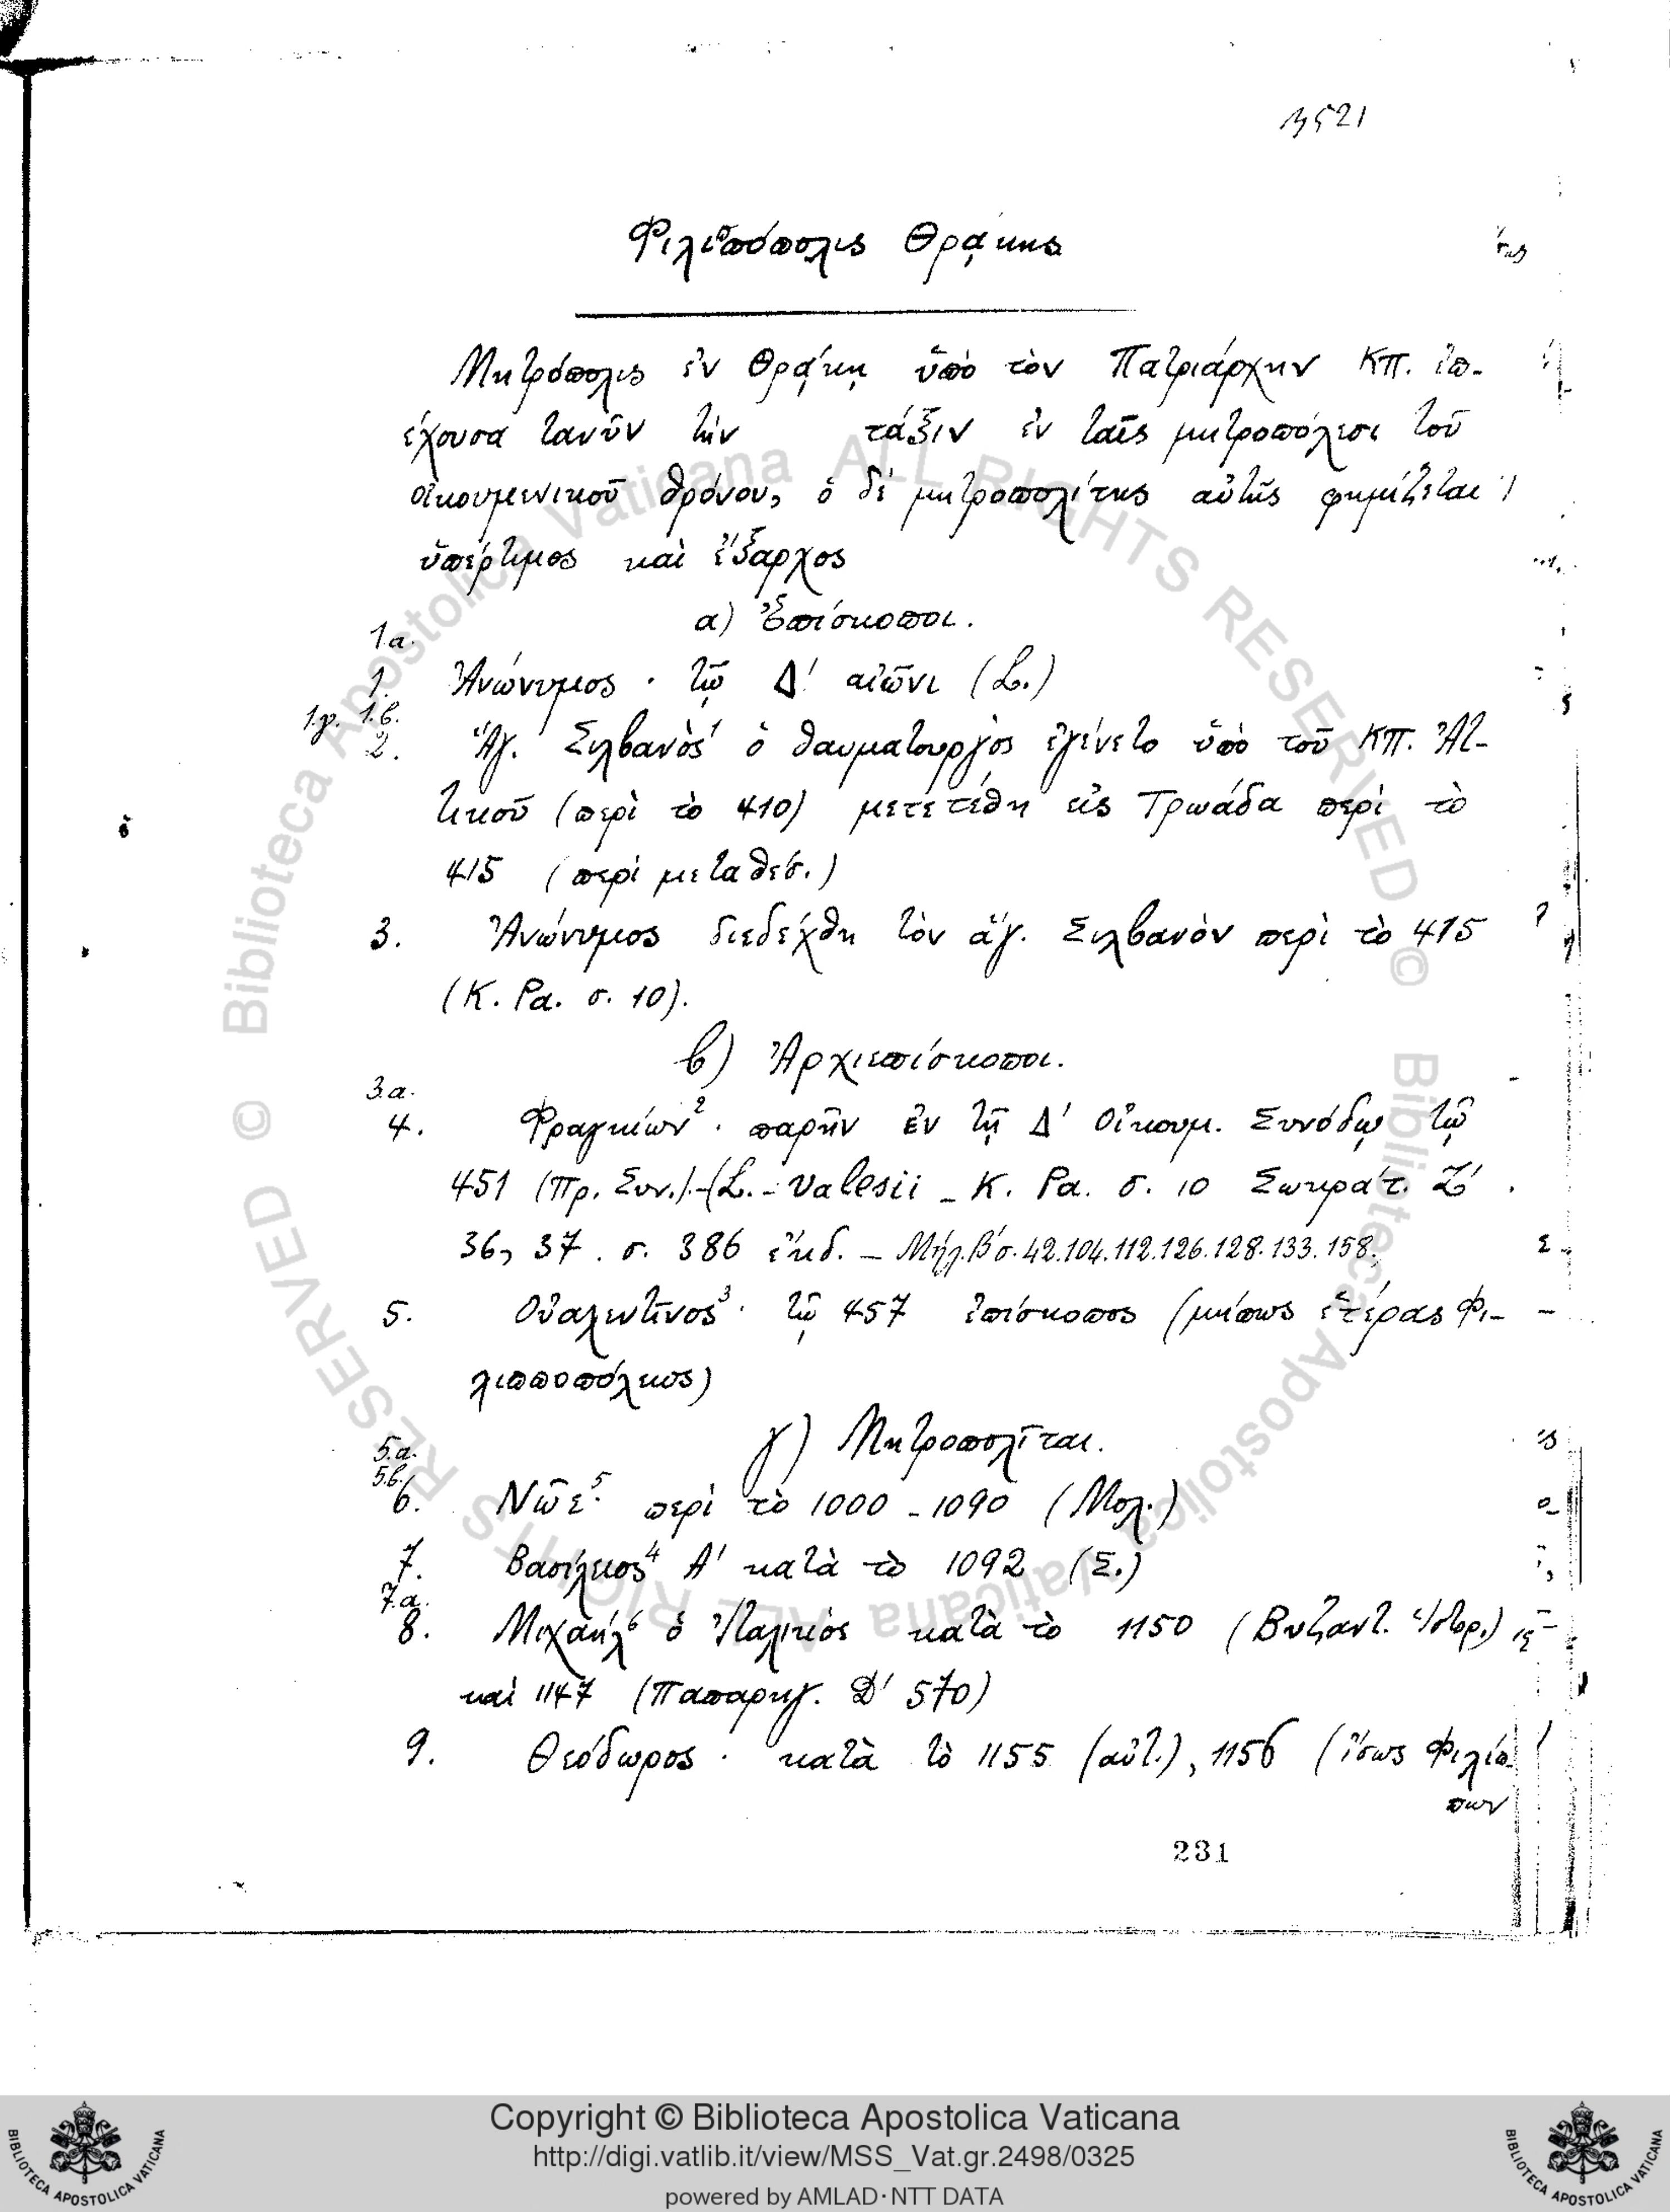 3521
Φιλιππόπολις Θρᾴκης
Μητρόπολις ἐν Θρᾴκῃ ὑπὸ τὸν Πατριάρχην ΚΠ. ἐπ-
έχουσα τανῦν τὴν τάξιν ἐν ταῖς μητροπόλεσι τοῦ
οἰκουμενικοῦ θρόνου, ὁ δὲ μητροπολίτης αὐτῆς φημίζεται
ὑπέρτιμος καὶ ἔξαρχος
α) Ἐπίσκοποι.
1α.
1. Ἀνώνυμος · τῷ Δ' αἰῶνι (L.)
1.γ. 1.β.
2. Ἅγ. Σιλβανὸς¹ ὁ θαυματουργὸς ἐγένετο ὑπὸ τοῦ ΚΠ. Ἀτ-
τικοῦ (περὶ τὸ 410) μετετέθη εἰς Τρωάδα περὶ τὸ
415 (περὶ μεταθέσ.)
3. Ἀνώνυμος διεδέχθη τὸν ἅγ. Σιλβανὸν περὶ τὸ 415
(Κ. Ρα. σ. 10).
β) Ἀρχιεπίσκοποι.
3.α.
4. Φραγκίων² · παρῆν ἐν τῇ Δ' Οἰκουμ. Συνόδῳ τῷ
451 (Πρ. Συν.).-(L. - Valesii - Κ. Ρα. σ. 10 Σωκράτ. Ζ'
36, 37. σ. 386 ἐκδ. - Μήλ. Β' σ. 42.104.112.126.128.133.158.
5. Οὐαλεντῖνος³ · τῷ 457 ἐπίσκοπος (μήπως ἑτέρας Φι-
λιπποπόλεως)
γ) Μητροπολῖται.
5.α.
5.β.
6. Νῶε⁵· περὶ τὸ 1000 - 1090 (Μολ.)
7. Βασίλειος⁴ Α' κατὰ τὸ 1092 (Σ.)
7.α.
8. Μιχαὴλ⁶ ὁ Ἰταλικὸς κατὰ τὸ 1150 (Βυζαντ. Ἱστορ.)
καὶ 1147 (Παπαρηγ. Δ' 570)
9. Θεόδωρος · κατὰ τὸ 1155 (αὐτ.), 1156 (ἴσως Φιλίπ-
πων
231
© Biblioteca Apostolica Vaticana ALL RIGHTS RESERVED © Biblioteca Apostolica Vaticana ALL RIGHTS RESERVED
Copyright © Biblioteca Apostolica Vaticana
http://digi.vatlib.it/view/MSS_Vat.gr.2498/0325
powered by AMLAD·NTT DATA
BIBLIOTECA APOSTOLICA VATICANA
BIBLIOTECA APOSTOLICA VATICANA